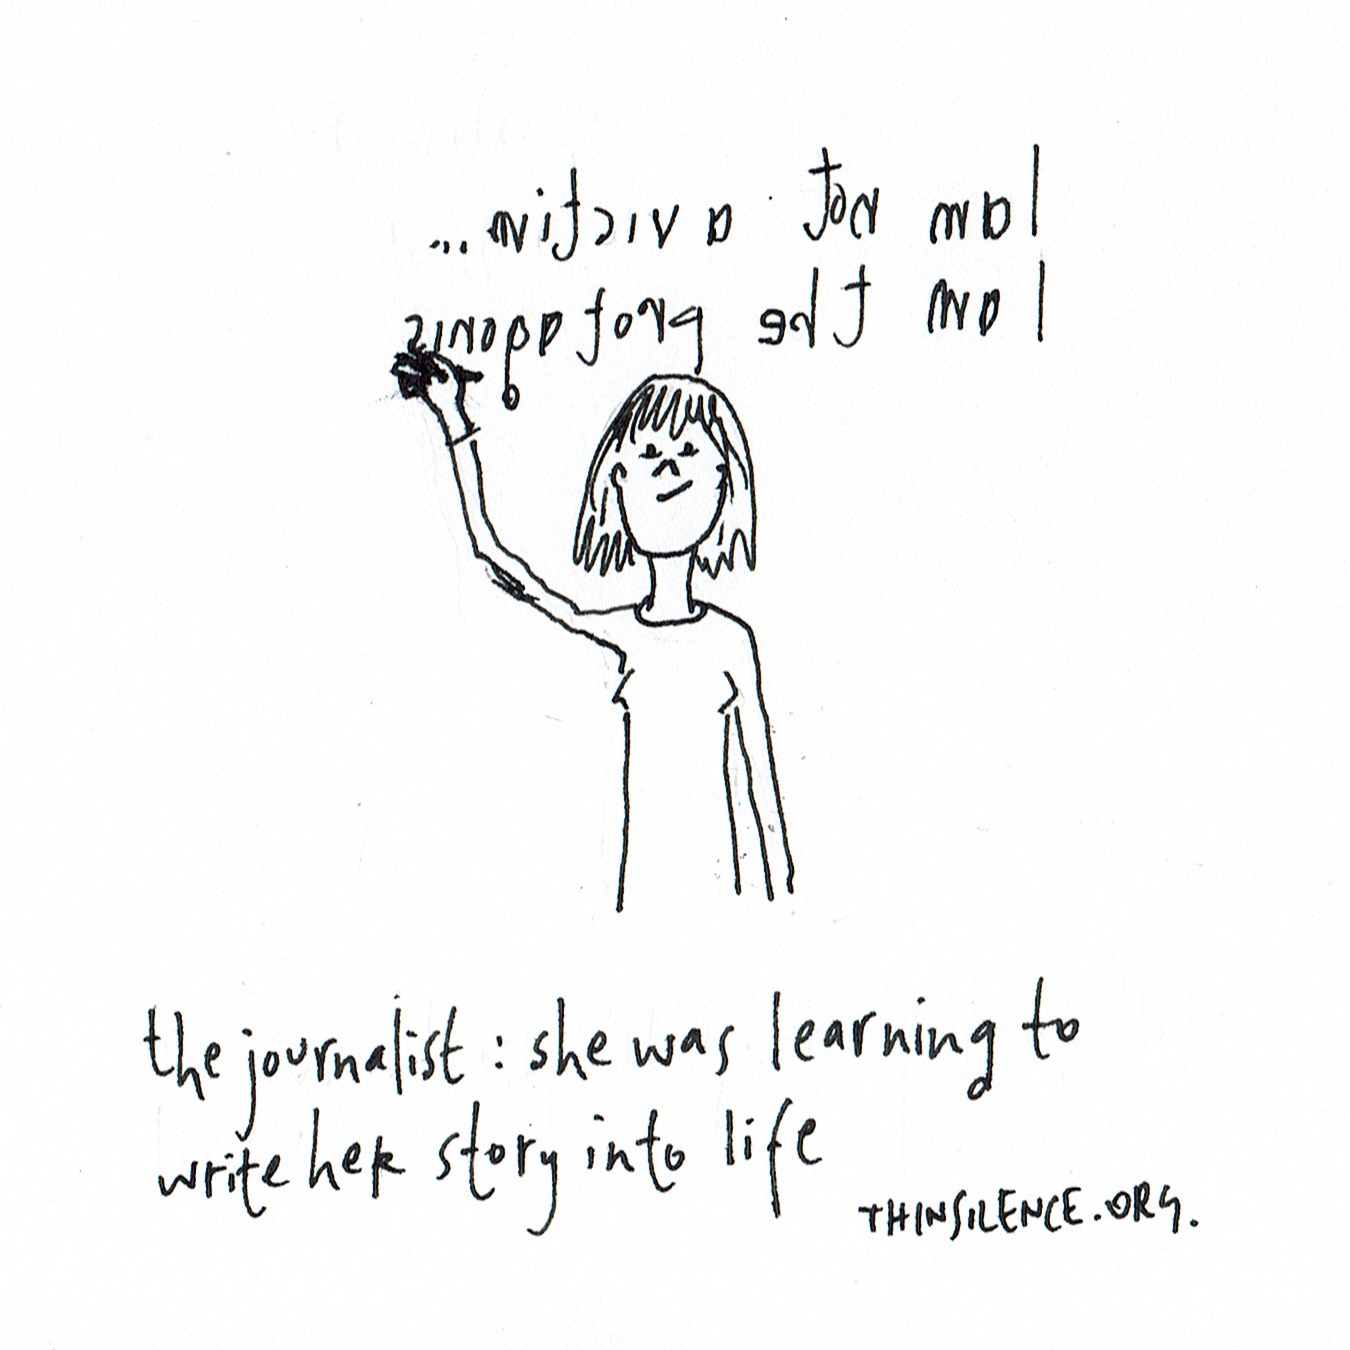 I am not a victim...
I am the protagonis
the journalist: she was learning to
write her story into life
THINSILENCE.ORG.